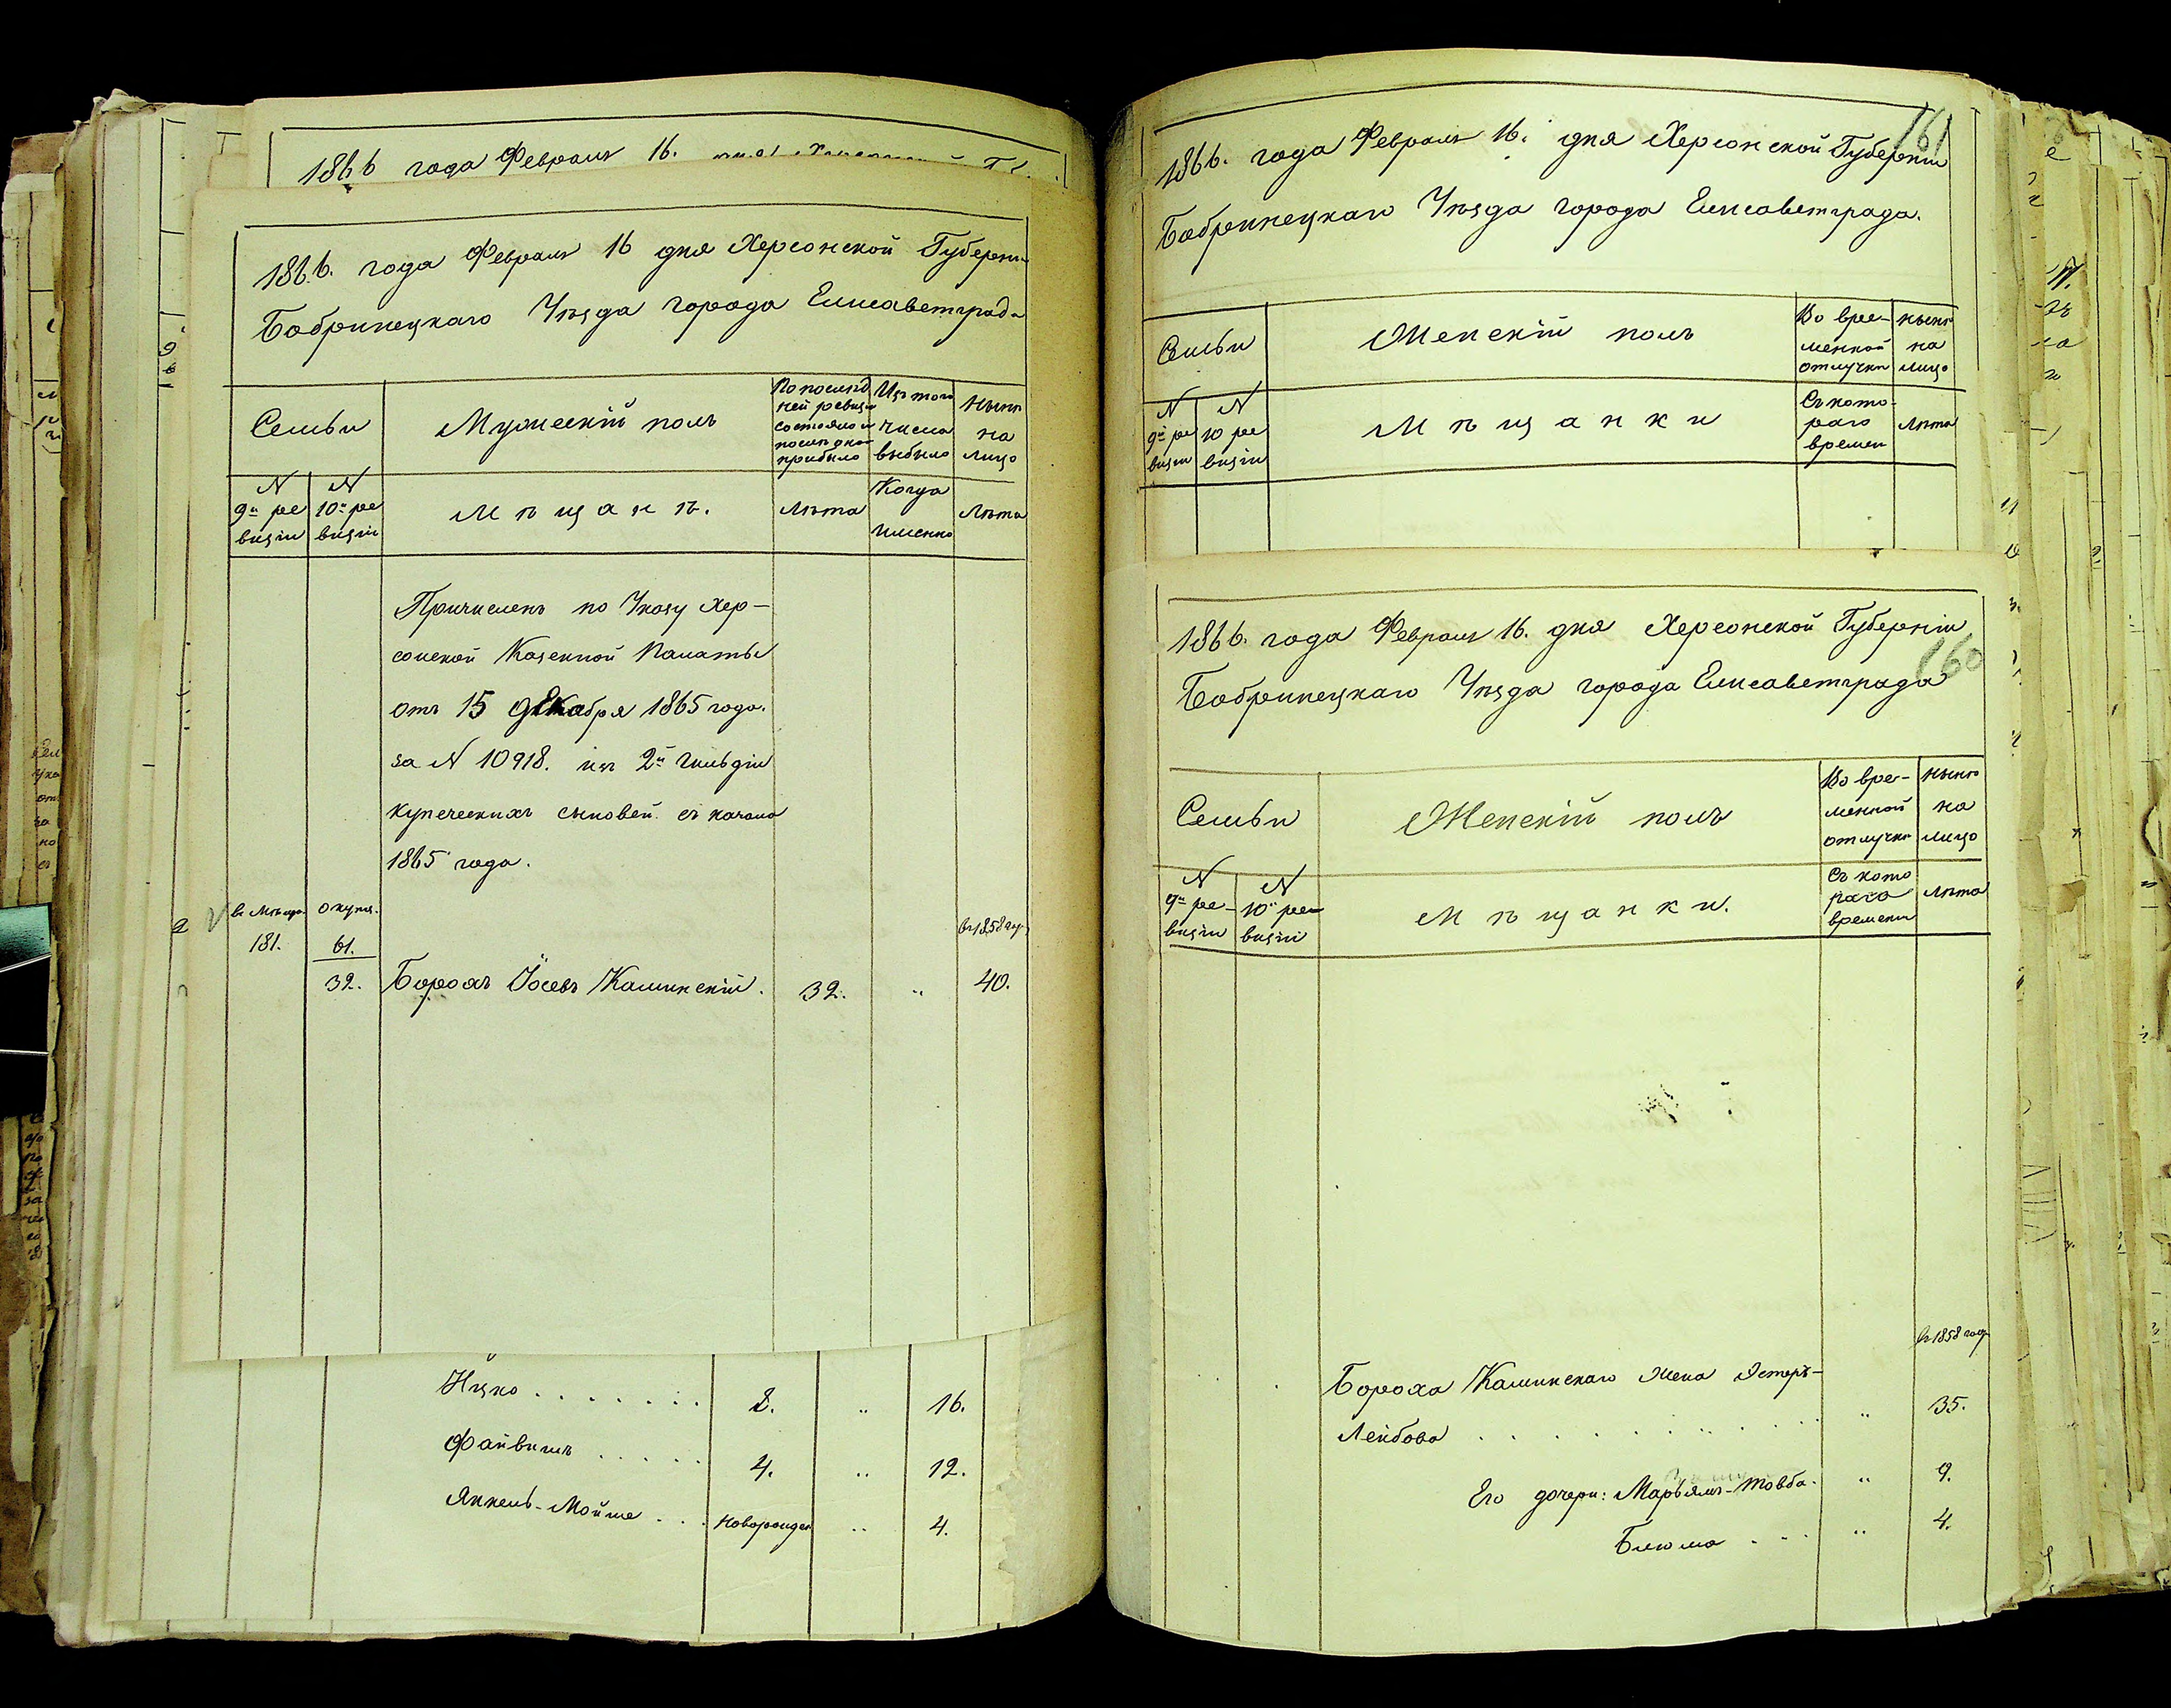 1866 года Февраля 16.
1866. года Февраля 16 дня Херсонской Губерни
Бобринецкаго Уѣзда города Елисаветграда
Семьи
Мужескій полъ
По послѣд
ней ревизіи
состояло и
послѣ оной
прибыло
Изъ того
числа
выбыло
Нынѣ
на
лицо
N
9й ре
визіи
N
10й ре
визіи
Мѣщанъ.
Лѣта
Когда
именно
Лѣта
Причисленъ по Указу Хер-
сонской Казенной Палаты
отъ 15 Декабря 1865 года.
за N 10918. изъ 2й гильдіи
купеческихъ сыновей съ начала
1865 года.
181.
61.
въ 1858 году
32. Борохъ Іосевъ Каминскій. 32. " 40.
Ицко . . . . . . . 8. " 16.
Файвишъ . . . . . 4. " 12.
Янкель-Мойше . . . новорожден " 4.
161
1866. года Февраля 16. дня Херсонской Губерніи
Бобринецкаго Уѣзда города Елисаветграда.
Семьи
Женскій полъ
Во вре-
менной
отлучкѣ
нынѣ
на
лицо
N
9й ре
визіи
N
10 ре
визіи
Мѣщанки
Съ кото-
раго
времен
Лѣта
1866. года Февраля 16. дня Херсонской Губерніи
160
Бобринецкаго Уѣзда города Елисаветграда
Семьи
Женскій полъ
Во вре-
менной
отлучкѣ
нынѣ
на
лицо
N
9й ре-
визіи
N
10й ре-
визіи
Мѣщанки.
Съ кото
раго
времени
Лѣта
въ 1858 году
Бороха Каминскаго жена Эстеръ-
Лейбова . . . . . . . . . " 35.
Его дочери: Марьямъ-Товба. " 9.
Блюма . . . " 4.